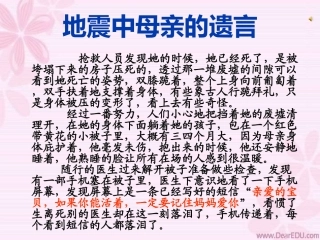 地震中母亲的遗言
抢救人员发现她的时候，她已经死了，是被
垮塌下来的房子压死的，透过那一堆废墟的间隙可以
看到她死亡的姿势，双膝跪着，整个上身向前匍匐着
，双手扶着地支撑着身体，有些象古人行跪拜礼，只
是身体被压的变形了，看上去有些奇怪。
经过一番努力，人们小心地把挡着她的废墟清
理开，在她的身体下面躺着她的孩子，包在一个红色
带黄花的小被子里，大概有三四个月大，因为母亲身
体庇护着，他毫发未伤，抱出来的时候，他还安静地
睡着，他熟睡的脸让所有在场的人感到很温暖。
随行的医生过来解开被子准备做些检查，发现
有一部手机塞在被子里，医生下意识地看了一下手机
屏幕，发现屏幕上是一条已经写好的短信“亲爱的宝
贝，如果你能活着，一定要记住妈妈爱你”，看惯了
生离死别的医生却在这一刻落泪了，手机传递着，每
个看到短信的人都落泪了。
www.DearEDU.com